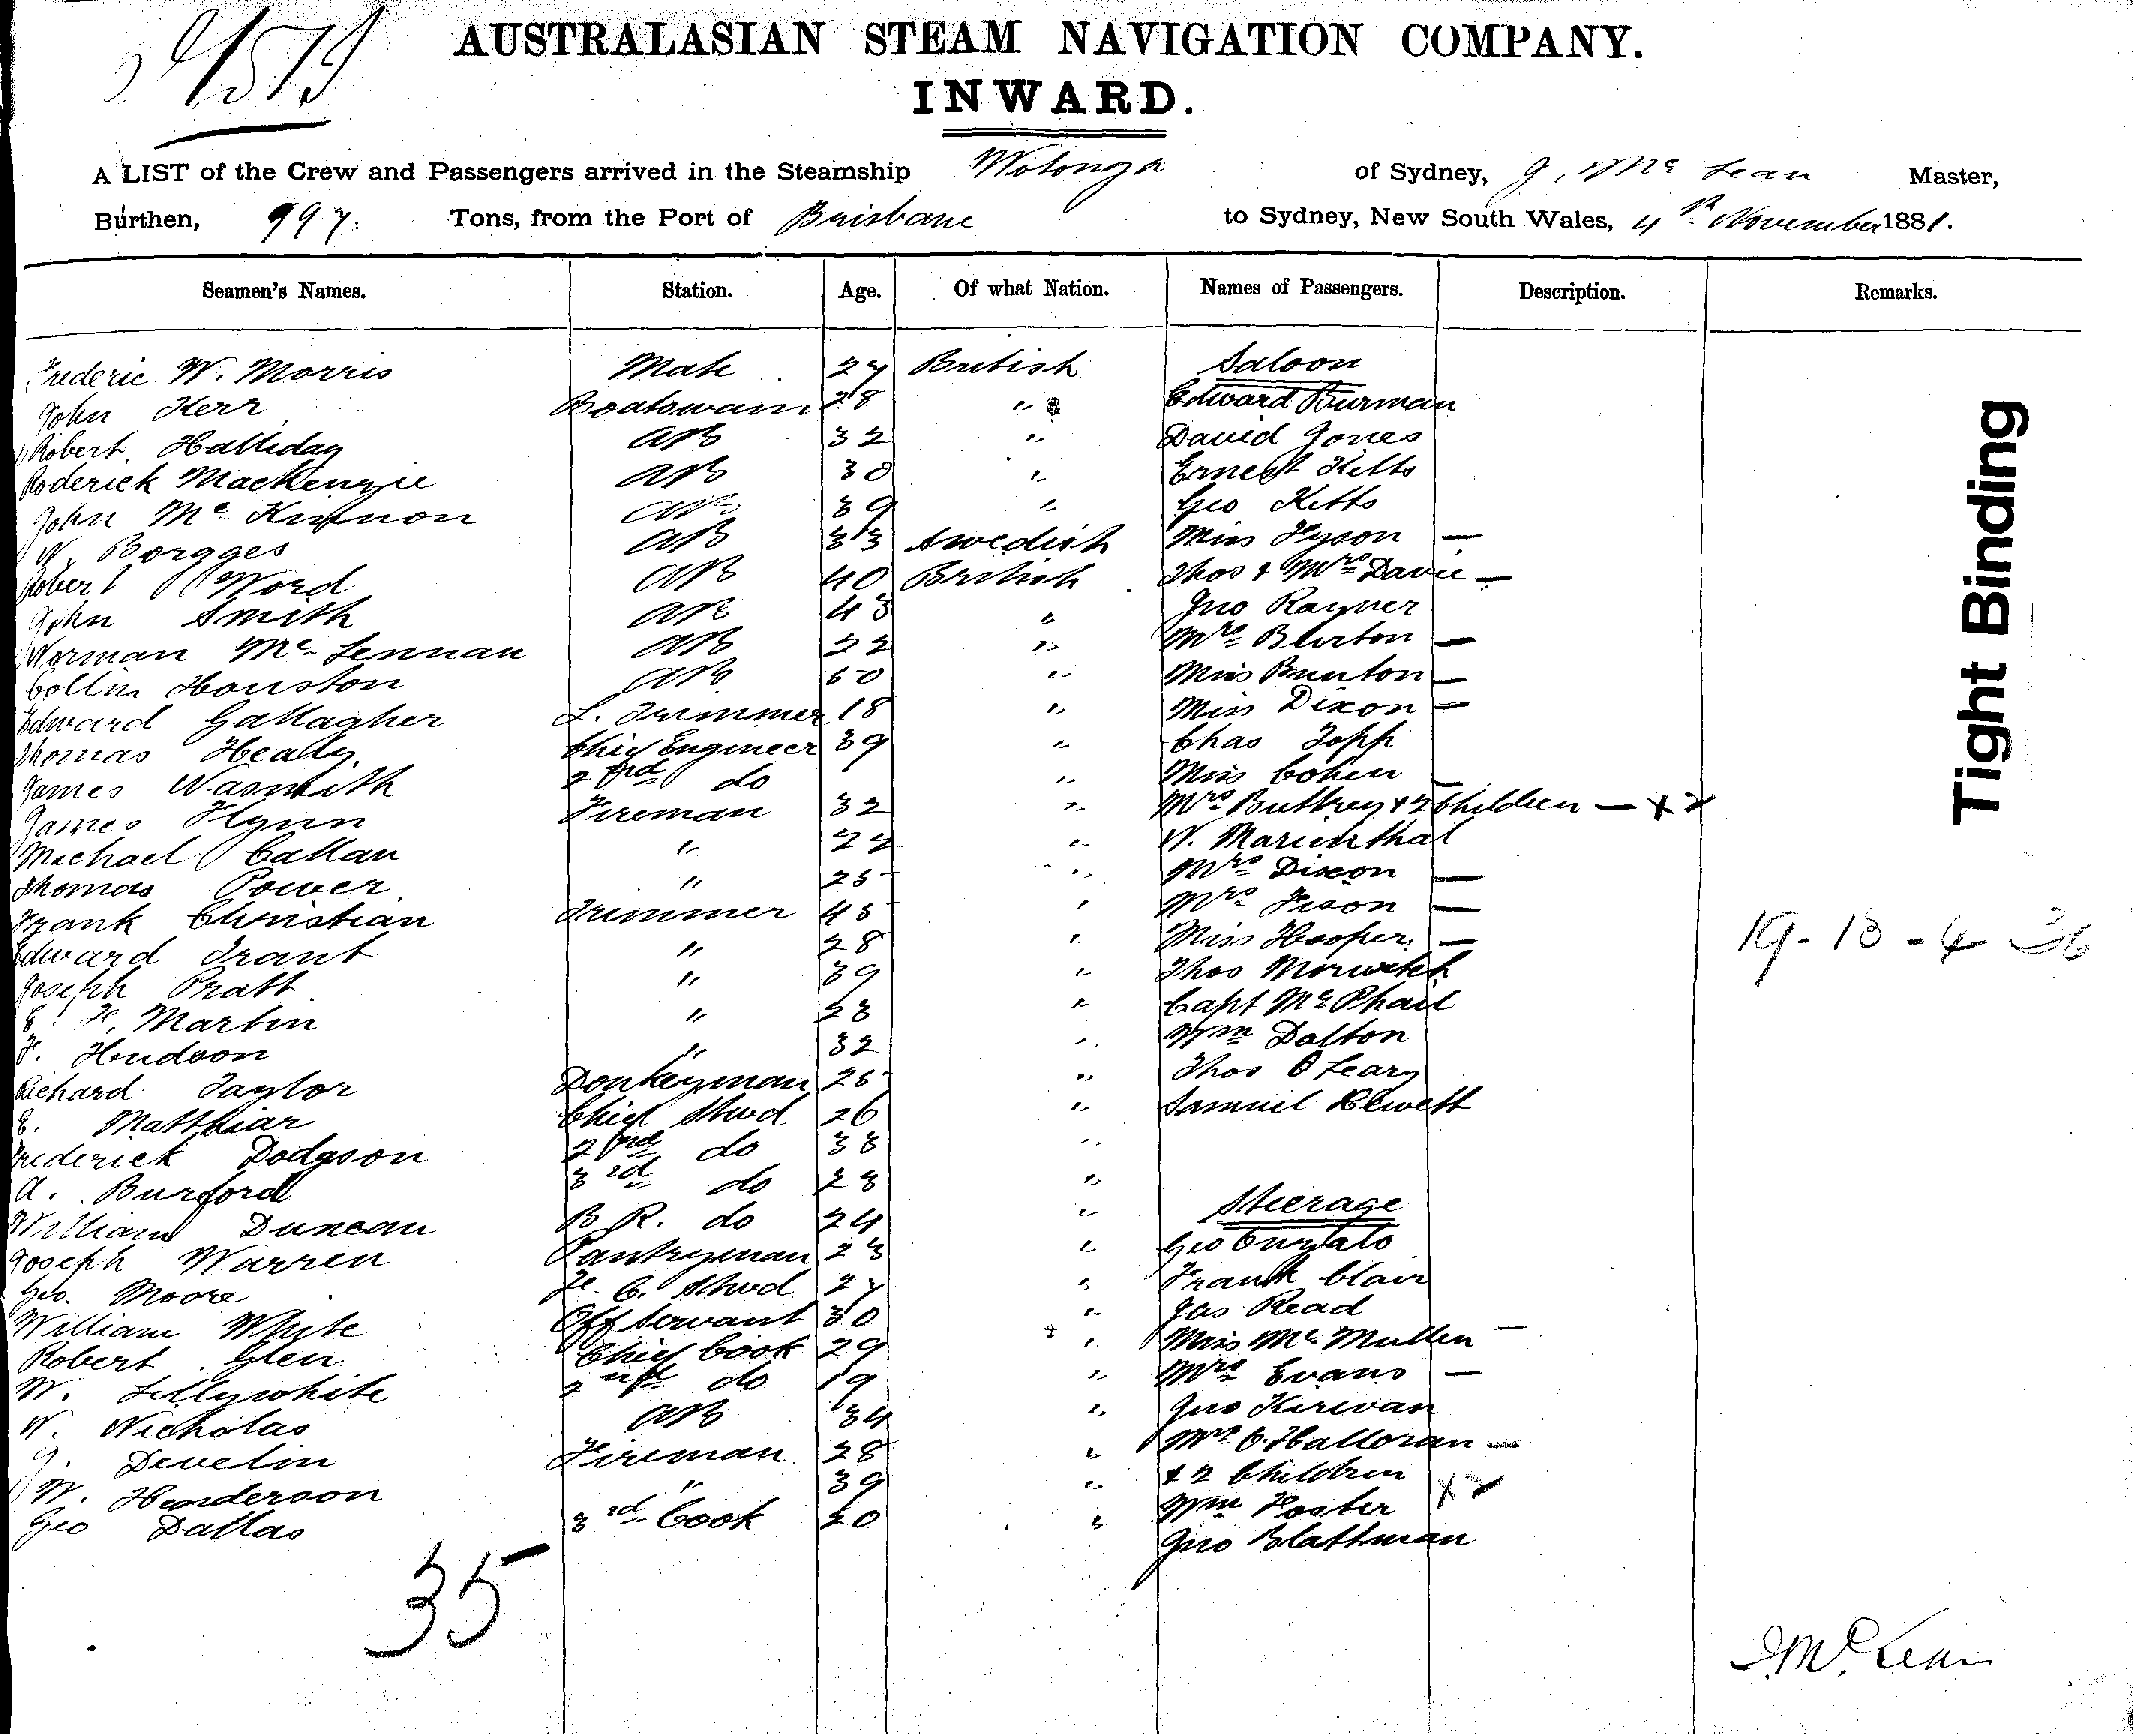 AUSTRALASIAN STEAM NAVIGATION COMPANY.
INWARD.
A LIST of the Crew and Passengers arrived in the Steamship Wotonga of Sydney, J. McLean Master,
Burthen, 997 Tons, from the Port of Brisbane to Sydney, New South Wales, 4th November 1881.
Seamen's Names. Station. Age. Of what Nation. Names of Passengers. Description. Remarks.
Frederic W. Morris Mate 27 British Saloon
John Kerr Boatswain 28 " Edward Burman
Robert Halliday AB 32 " David Jones
Roderick Mackenzie AB 30 " Ernest Kitts
John McKinnon AB 39 " Geo Kitts
N. Borgges AB 33 Swedish Miss Tyson —
Robert Word AB 40 British Thos & Mrs Davie —
John Smith AB 43 " Jno Rayner
Norman McLennan AB 22 " Mrs Burton —
Collin Houston AB 50 " Miss Burton —
Edward Gallagher L. Trimmer 18 " Miss Dixon —
Thomas Healy Chief Engineer 39 " Chas Topp
James Wasmith 2nd do " Miss Cohen —
James Flynn Fireman 32 " Mrs Buttrey & 2 Children — x 2
Michael Callan " 22 " N. Marienthal
Thomas Power " 25 " Mrs Dixon —
Frank Christian Trimmer 45 " Mrs Fison —
Edward Grant " 28 " Miss Hooper —
Joseph Pratt " 39 " Thos Morwitch
E. H. Martin " 23 " Capt McPhail
F. Hudson " 32 " Wm Dalton
Richard Taylor Donkeyman 25 " Thos O Leary
E. Matthiar Chief Stwd 26 " Samuel Hewett
Frederick Dodgson 2nd do 38 "
A. Burford 3rd do 23 "
William Duncan B. R. do 24 " Steerage
Joseph Warren Pantryman 23 " Geo
Geo. Moore F. C. Stwd 27 " Frank Clair
William White Off Servant 30 " Jas Read
Robert Glen Chief Cook 29 " Miss McMullen —
W. Lillywhite 2nd do 19 " Mrs Evans —
N. Nicholas AB 34 " Jno Kirwan
J. Develin Fireman 28 " Mrs O.Halloran —
W. Henderson " 39 " & 2 Children x 2
Geo Dallas 3rd Cook 20 " Wm Foster
Jno Blathman
19 - 13 - 4 36
35
J. McLean
Tight Binding